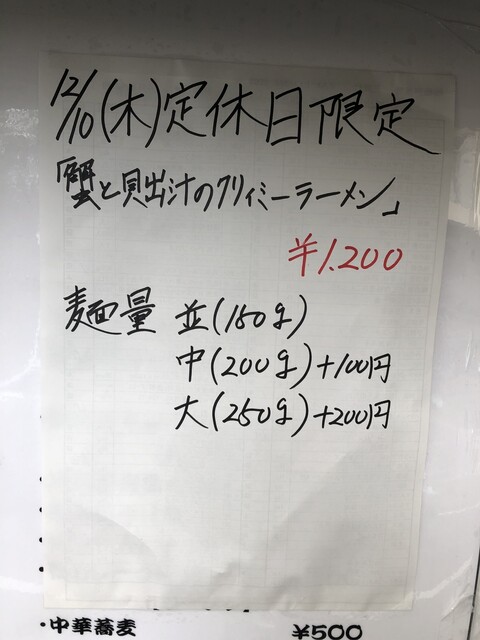 12/10(木)定休日限定
「蟹と貝出汁のクリィミーラーメン」
¥1.200
麺量 並(150g)
中(200g)+100円
大(250g)+200円
・中華蕎麦 ¥500